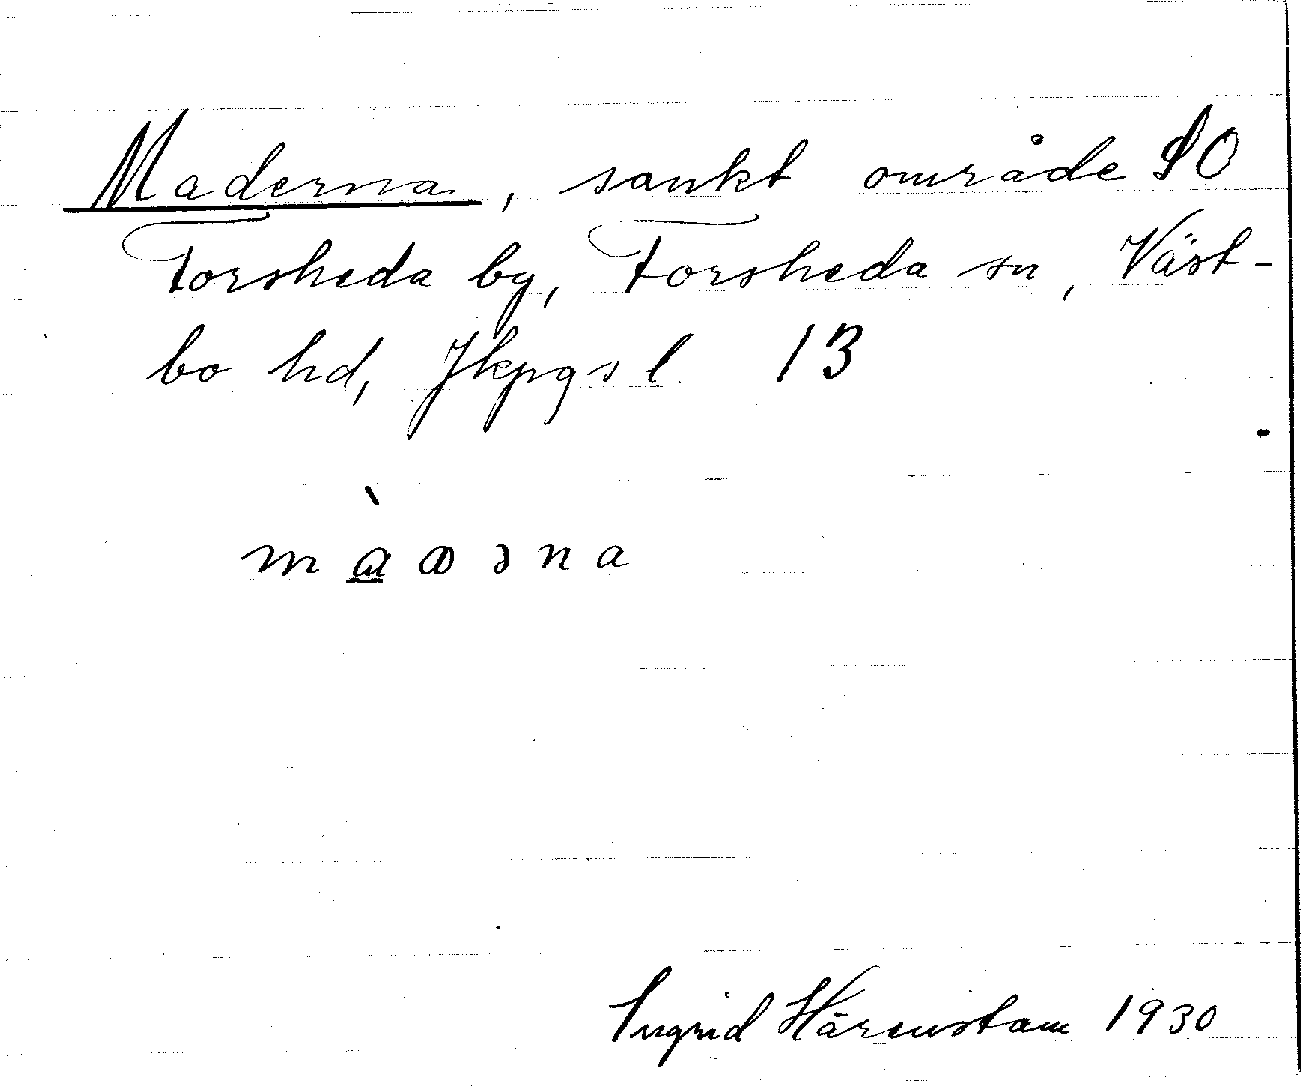 Maderna, sankt område SO
Forsheda by, Forsheda sn, Väst-
bo hd, Jkpgs l 13
Ingrid Härenstam 1930